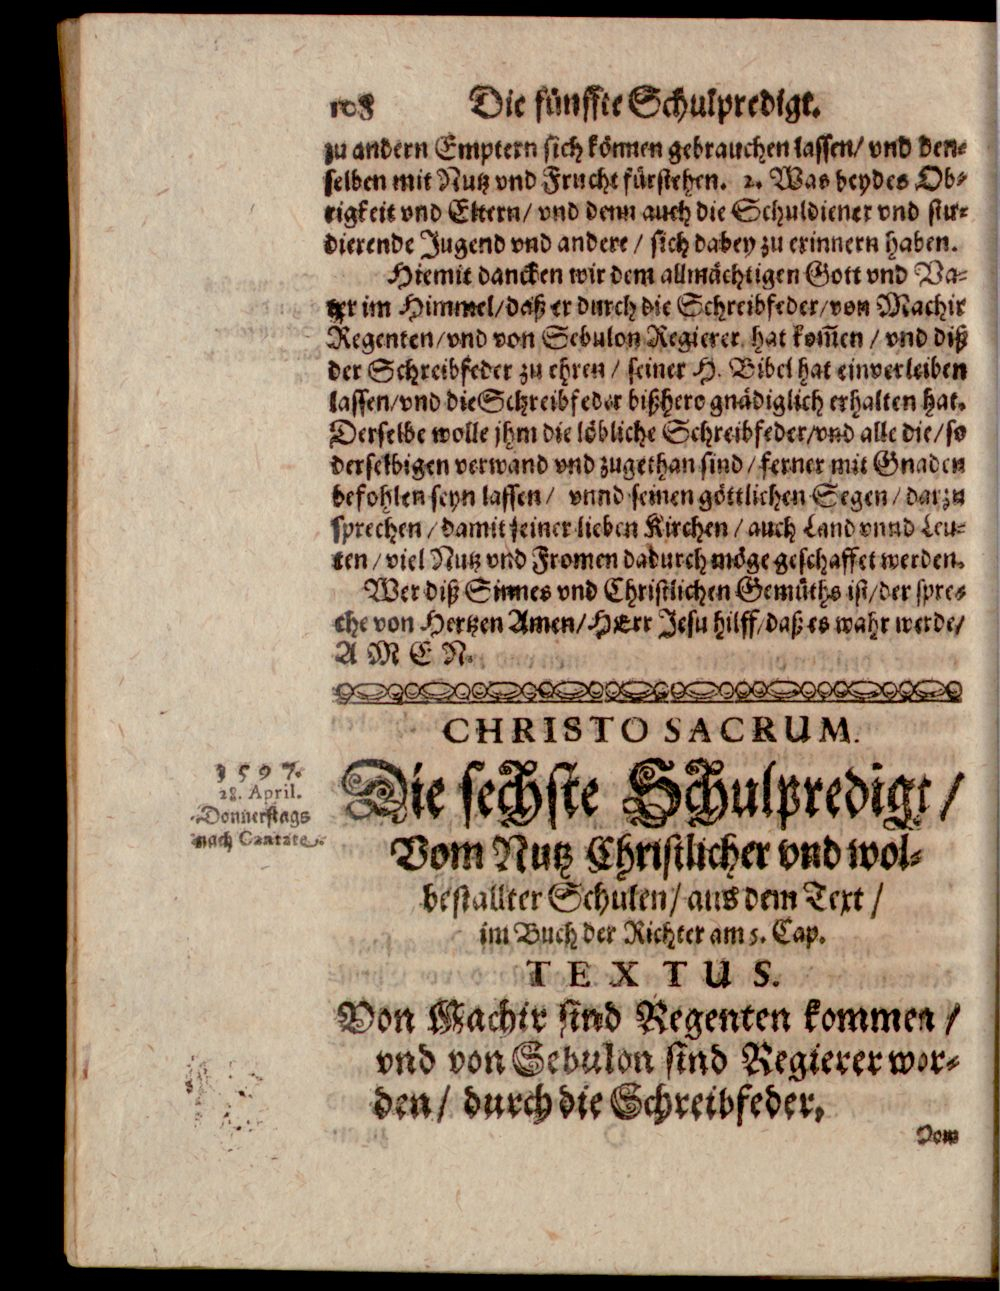 108 Die fünffte Schulpredigt.
zu andern Emptern sich können gebrauchen lassen/ vnd den-
selben mit Nutz vnd Frucht fürstehen. 2. Was beydes Ob-
rigkeit vnd Eltern/ vnd denn auch die Schuldiener vnd stu-
dierende Jugend vnd andere / sich dabey zu erinnern haben.
Hiemit dancken wir dem allmächtigen Gott vnd Va-
ter im Himmel/daß er durch die Schreibfeder/von Machir
Regenten/vnd von Sebulon Regierer hat kom̄en / vnd diß
der Schreibfeder zu ehren / seiner H. Bibel hat einverleiben
lassen/vnd die Schreibfeder bißhero gnädiglich erhalten hat.
Derselbe wolle jhm die löbliche Schreibfeder/vnd alle die/so
derselbigen verwand vnd zugethan sind / ferner mit Gnaden
befohlen seyn lassen / vnnd seinen göttlichen Segen / darzu
sprechen / damit seiner lieben Kirchen / auch Land vnnd Leu-
ten / viel Nutz vnd Fromen dadurch möge geschaffet werden.
Wer diß Sinnes vnd Christlichen Gemüths ist/der spre-
che von Hertzen Amen/ HErr Jesu hilff/daß es wahr werde/
A M E N.
CHRISTO SACRUM.
1597.
28. April.
Donnerstags
nach Cantate.
Die sechste Schulpredigt /
Vom Nutz Christlicher vnd wol-
bestallter Schulen/ aus dem Text /
im Buch der Richter am 5. Cap.
T E X T U S.
Von Machir sind Regenten kommen /
vnd von Sebulon sind Regierer wor-
den / durch die Schreibfeder,
Vom